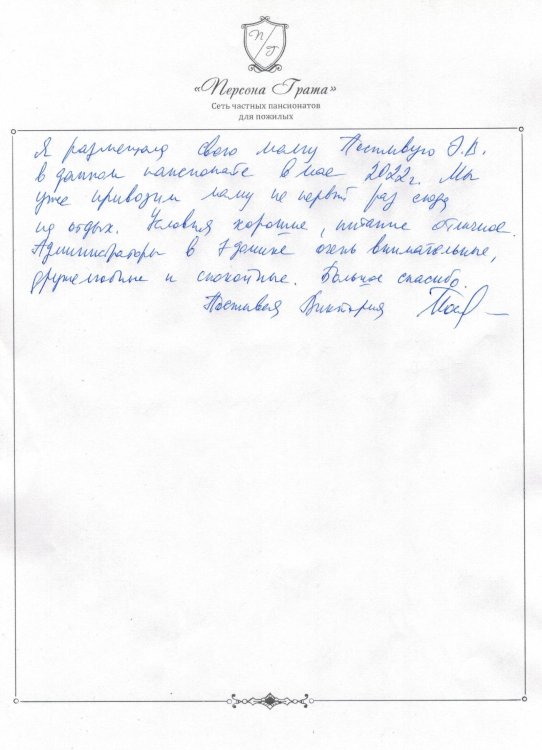 П
Г
«Персона Грата»
Сеть частных пансионатов
для пожилых
Я размещала свою маму Постивую Э.В.
в данном пансионате в мае 2022г. Мы
уже привозим маму не первый раз сюда
на отдых. Условия хорошие, питание отличное.
Администраторы в 7 домике очень внимательные,
дружелюбные и спокойные. Большое спасибо.
Виктория